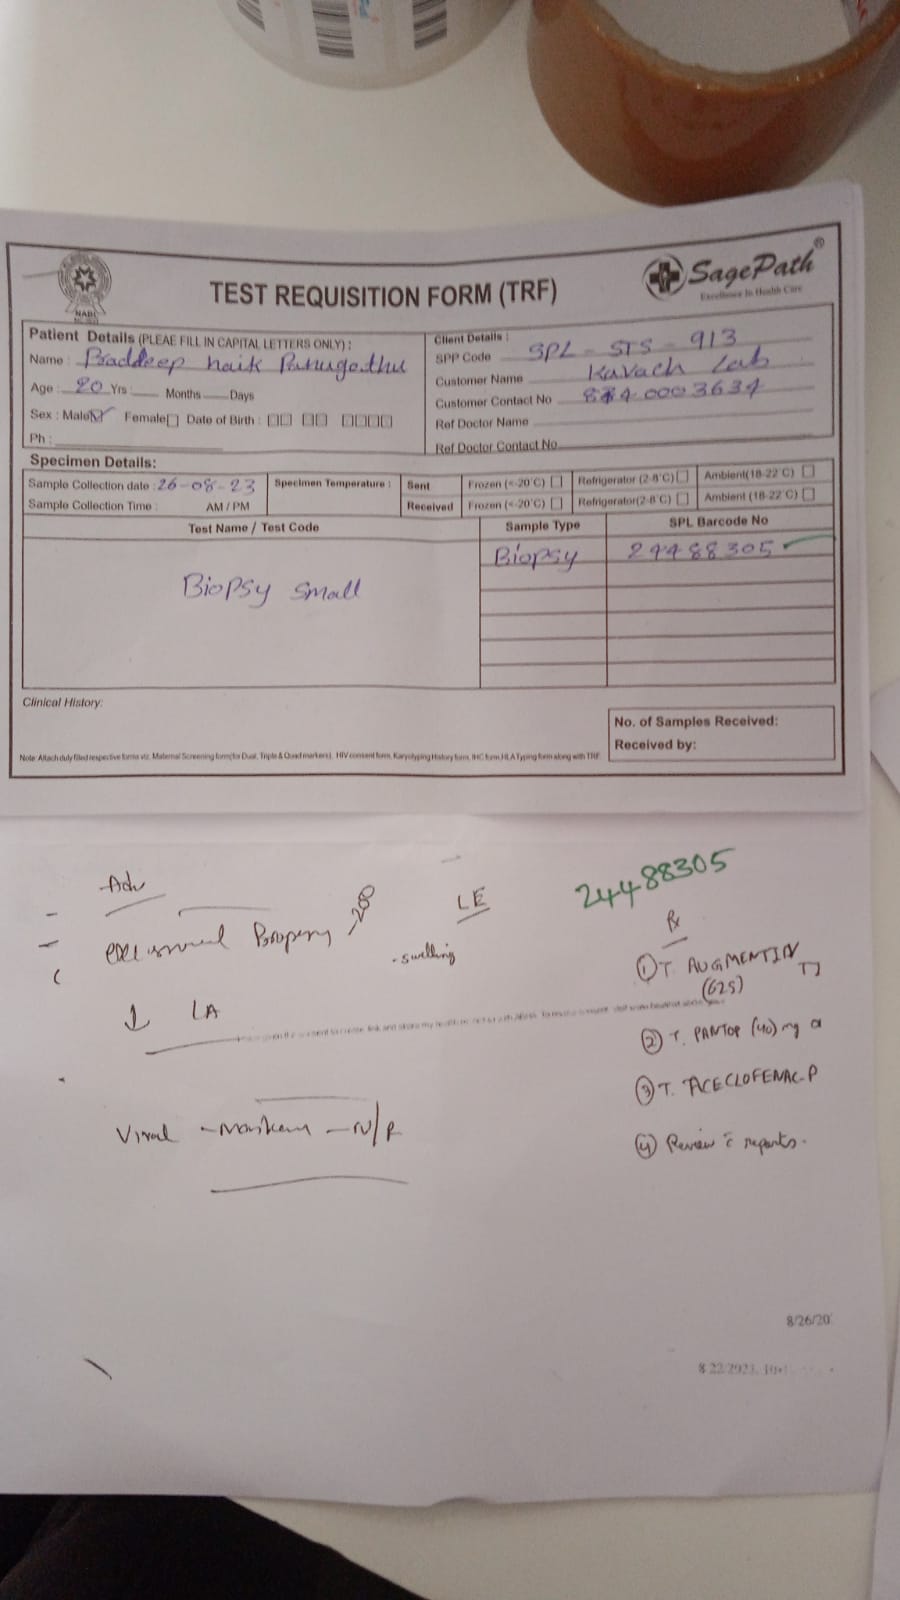 NABL
TEST REQUISITION FORM (TRF)
SagePath®
Excellence In Health Care
Patient Details (PLEAE FILL IN CAPITAL LETTERS ONLY) :
Name : Praddeep naik Parugothu
Age : 20 Yrs Months Days
Sex : Male Female Date of Birth :
Ph :
Client Details :
SPP Code SPL - STS - 913
Customer Name Kavach Lab
Customer Contact No
Ref Doctor Name
Ref Doctor Contact No
Specimen Details:
Sample Collection date : 26-08-23
Sample Collection Time : AM / PM
Specimen Temperature : Sent Frozen (<-20°C) Refrigerator (2-8°C) Ambient(18-22°C)
Received Frozen (<-20°C) Refrigerator(2-8°C) Ambient (18-22°C)
Test Name / Test Code Sample Type SPL Barcode No
Biopsy 24488305
Biopsy small
Clinical History:
No. of Samples Received:
Received by:
Note: Attach duly filled respective forms viz. Maternal Screening form(for Dual, Triple & Quad markers), HIV consent form, Karyotyping History form, IHC form, HLA Typing form along with TRF
24488305
Adv
LE
Excisional Biopsy
- swelling
↓ LA
Viral - Markers - N/R
Rx
① T. AUGMENTIN
(625)
② T. PANTOP (40) mg
③ T. ACECLOFENAC-P
④ Review c̄ reports.
8/26/20
8/22/2023,